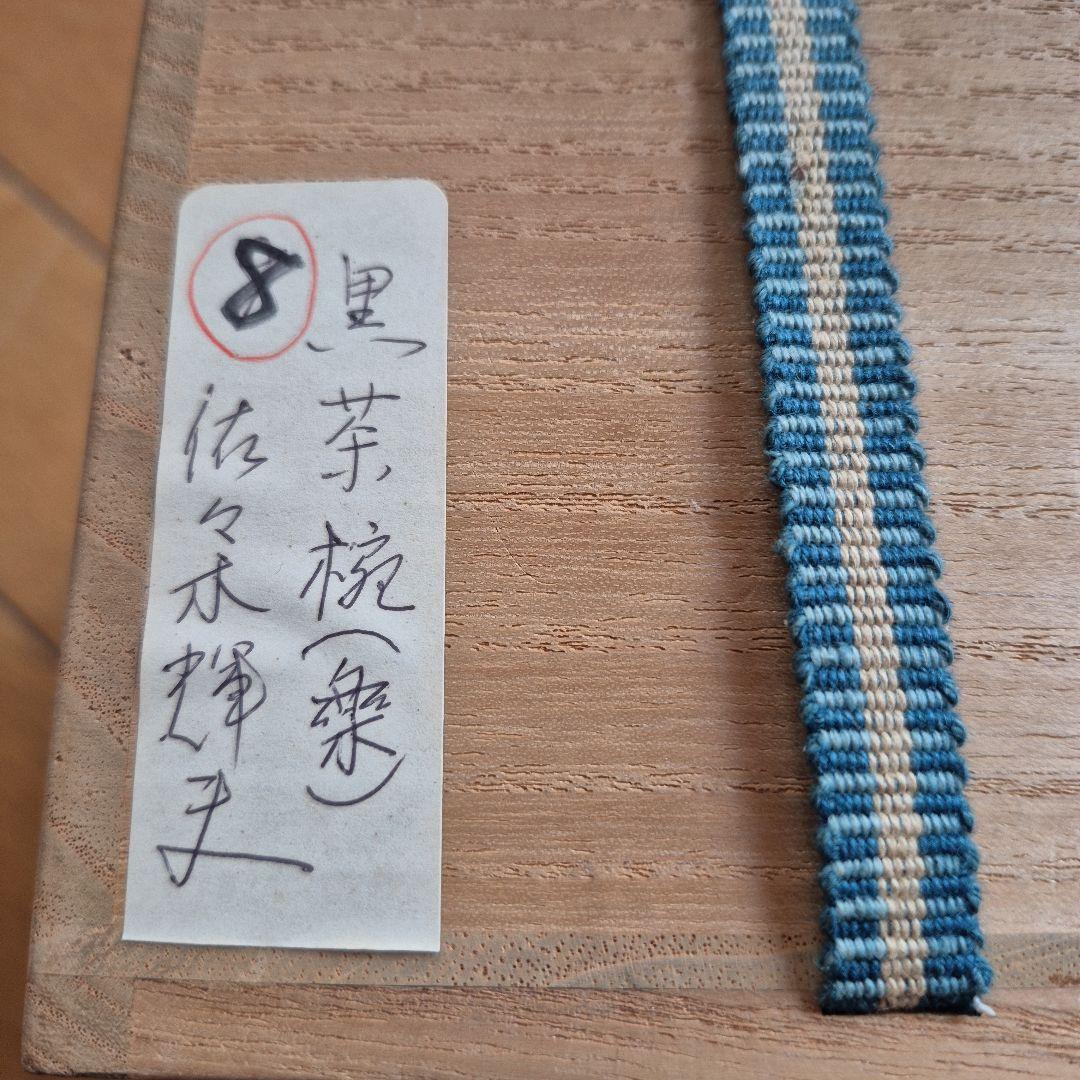 ⑧
黒茶椀(樂)
佐々木輝夫